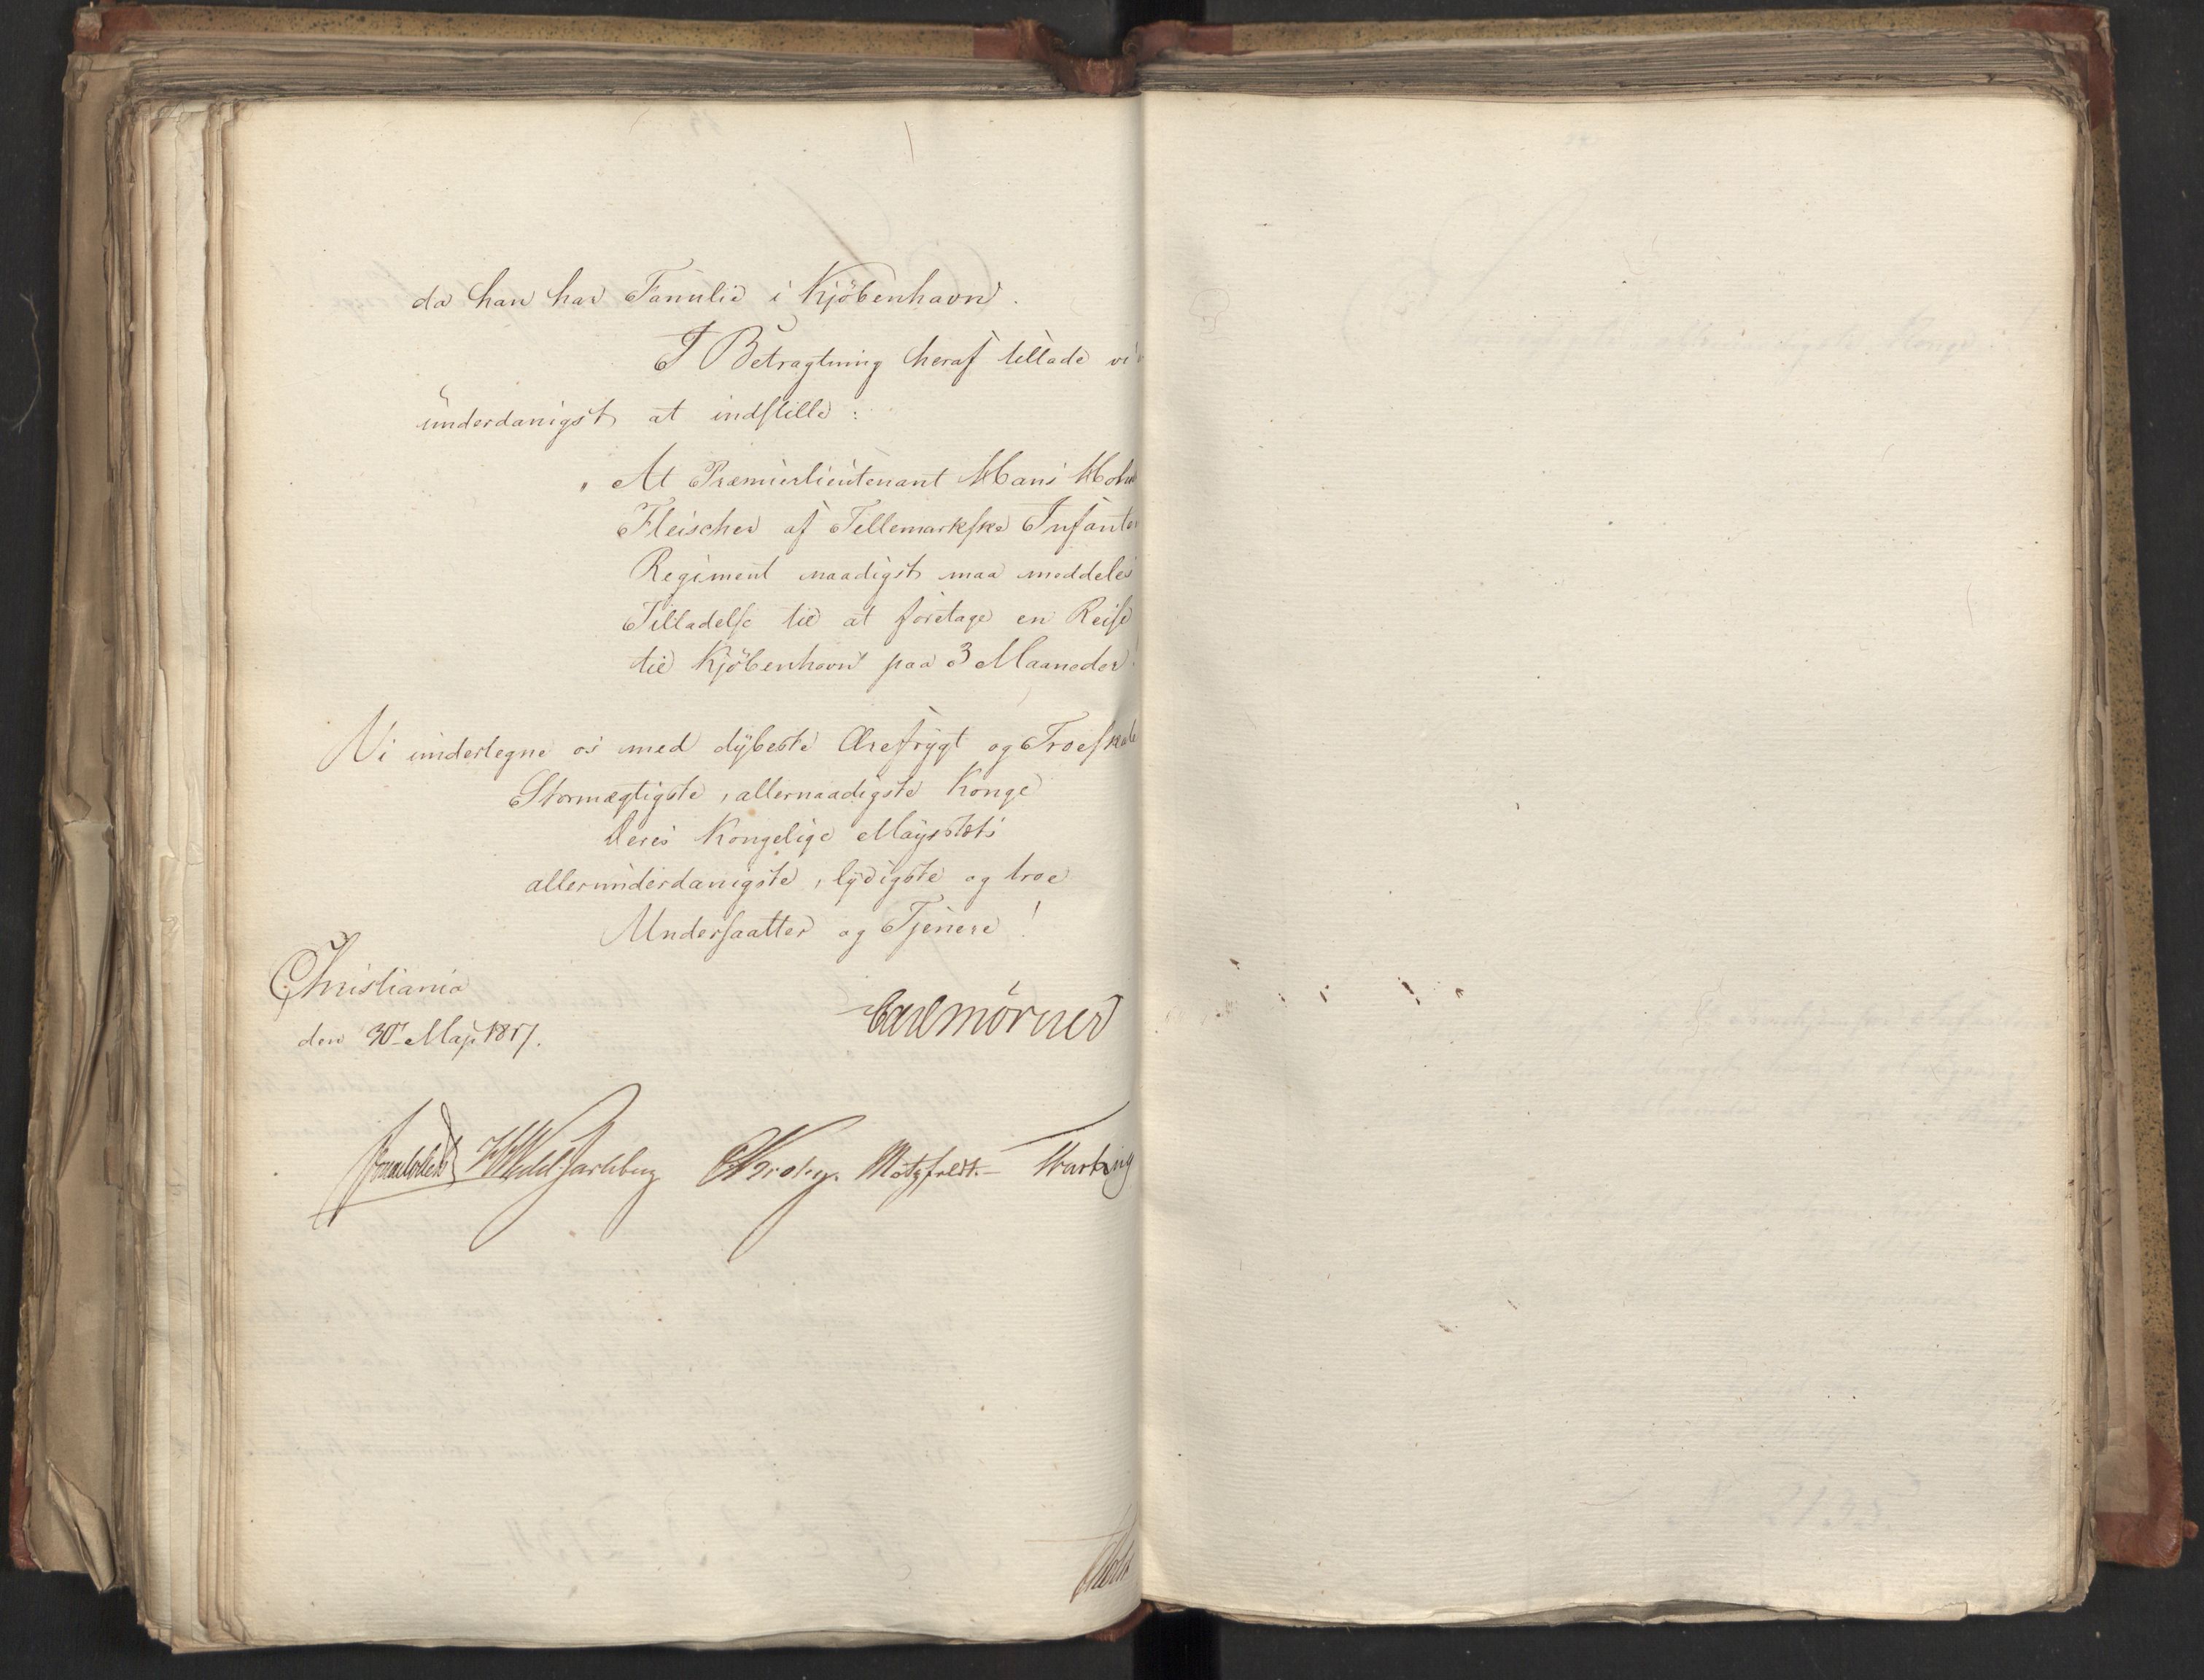 da han har Familie i Kjöbenhavn.
I Betragtning heraf tillade vi
underdanigst at indstille:
„At Premierlieutenant Hans Holm
Fleischer af Tellemarkske Infanter
Regiment naadigst maa meddeles
Tilladelse til at foretage en Reise
til Kjöbenhavn paa 3 Maaneder."
Vi undertegne os med dÿbeste Ærefrÿgt og Troeskab
Stormægtigste, allernaadigste Konge
Deres Kongelige Mayestæts
allerunderdanigste, lÿdigste og troe
Undersaatter og Tjenere!
Christiania
den 30te Maji 1817.
Carl Mörner
HWedel Jarlsberg Krohg. Motzfeldt.
Holst